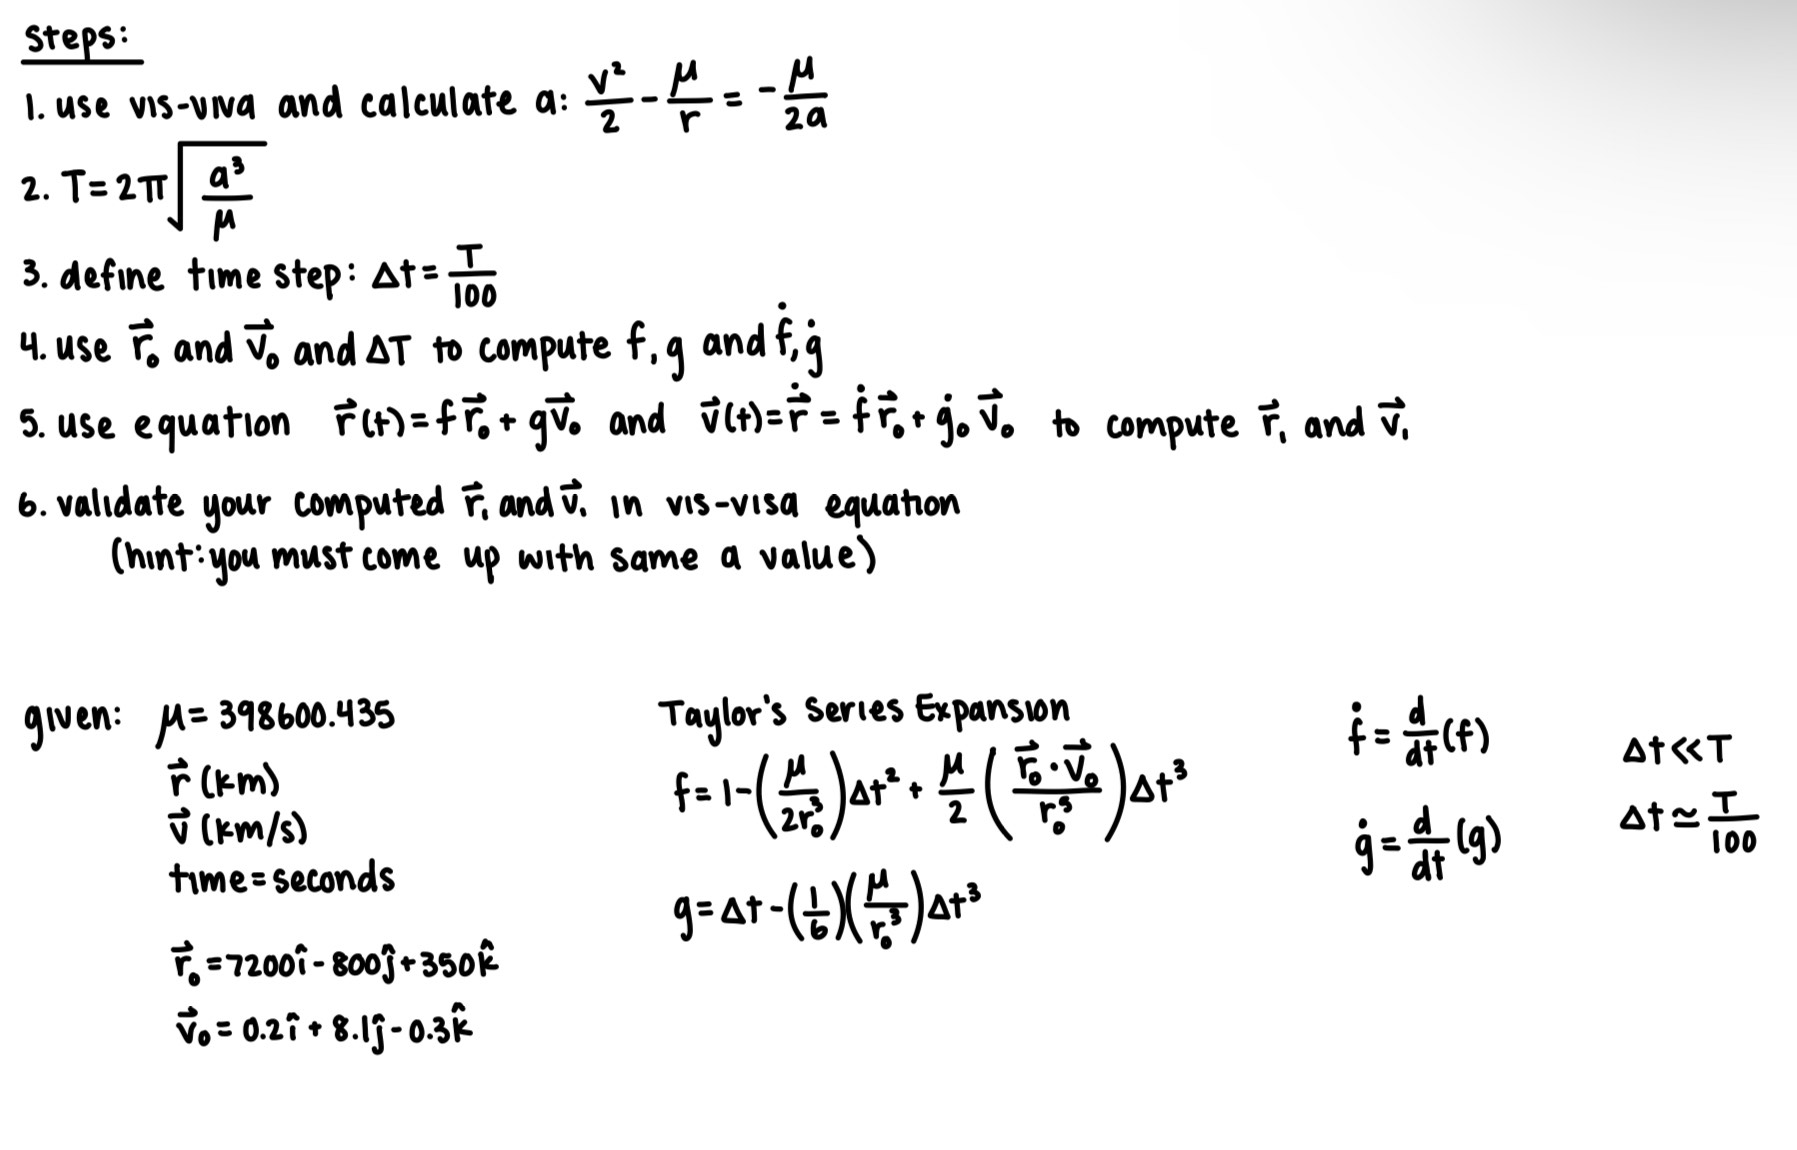 Steps:
1. use vis-viva and calculate a: v²/2 - μ/r = -μ/2a
2. T=2π√(a³/μ)
3. define time step: Δt = T/100
4. use r⃗₀ and v⃗₀ and ΔT to compute f, g and ḟ, ġ
5. use equation r⃗(t) = f r⃗₀ + g v⃗₀ and v⃗(t) = r⃗̇ = ḟ r⃗₀ + ġ₀ v⃗₀ to compute r⃗₁ and v⃗₁
6. validate your computed r⃗₁ and v⃗₁ in vis-visa equation
(hint: you must come up with same a value)
given: μ = 398600.435
r⃗ (km)
v⃗ (km/s)
time = seconds
r⃗₀ = 7200î - 800ĵ + 350k̂
v⃗₀ = 0.2î + 8.1ĵ - 0.3k̂
Taylor's Series Expansion
f = 1 - (μ/2r₀³)Δt² + μ/2 (r⃗₀ · v⃗₀/r₀⁵)Δt³
g = Δt - (1/6)(μ/r₀³)Δt³
ḟ = d/dt (f)
ġ = d/dt (g)
Δt << T
Δt ≃ T/100